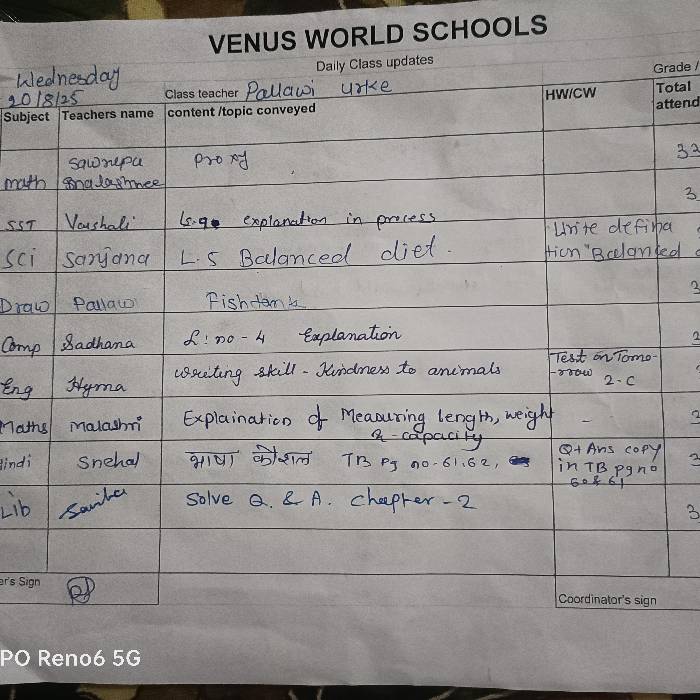 VENUS WORLD SCHOOLS
Daily Class updates
Wednesday
20/8/25
Class teacher Pallawi Urke
Grade /
Subject Teachers name content /topic conveyed HW/CW Total attend
math Proxy 33
SST Vaishali explanation in process 3
Sci Sanjana L.5 Balanced diet. Write defina
tion "Balanced
Draw Pallawi Fishtank
Comp Sadhana L:no-4 Explanation
Eng Hyma writing skill - Kindness to animals Test on Tomo-
-rrow 2-C
Maths Malashri Explaination of Measuring length, weight -
& capacity
Hindi Snehal भाषा कौशल TB Pg no-61,62, Q+Ans copy
in TB pg no
60 & 61
Lib Sarita Solve Q. & A. chapter-2 3
er's Sign
Coordinator's sign
PO Reno6 5G